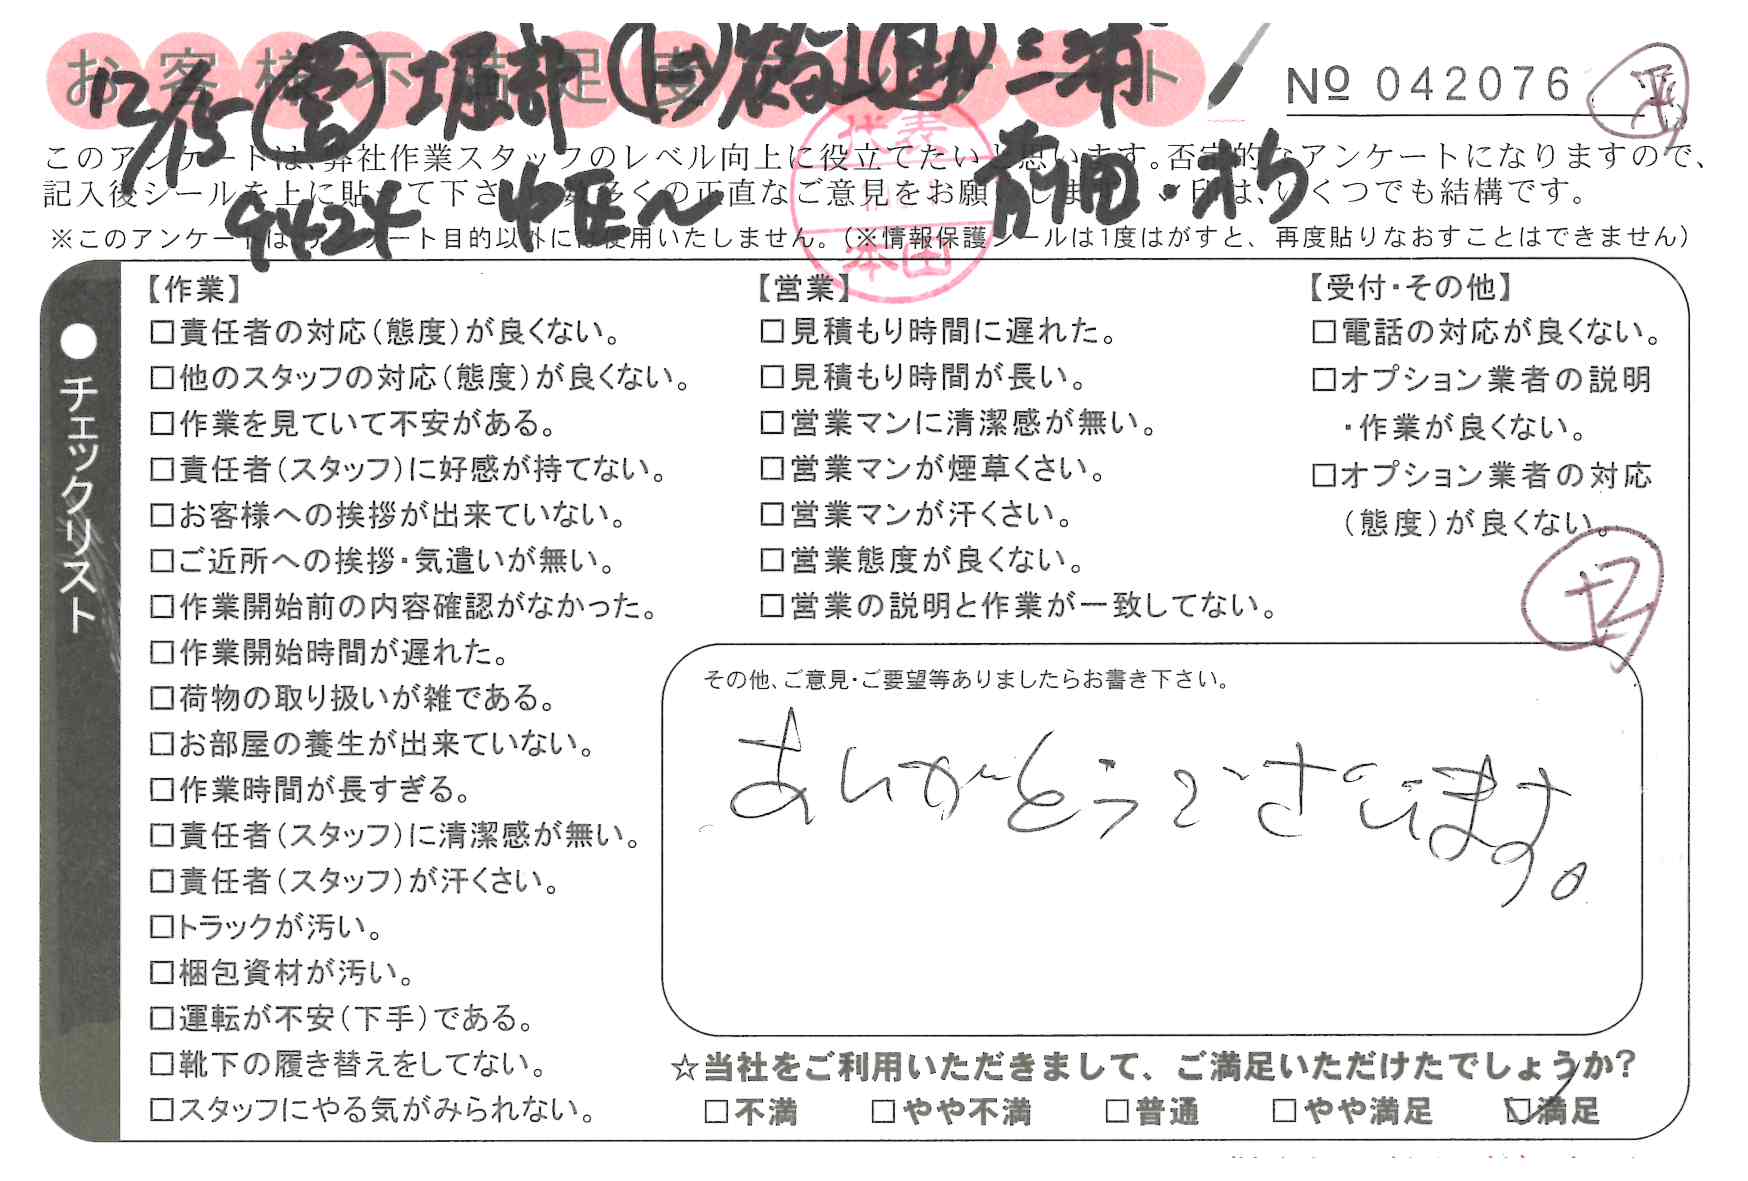 お客様不満足度アンケート
№ 042076
12/15 営 堀部 三浦
前田・オク
9424
代表
本田
このアンケートは、弊社作業スタッフのレベル向上に役立てたいと思います。否定的なアンケートになりますので、
記入後シールを上に貼って下さい。数多くの正直なご意見をお願いします。✓印は、いくつでも結構です。
※このアンケートはアンケート目的以外には使用いたしません。(※情報保護シールは1度はがすと、再度貼りなおすことはできません)
●チェックリスト
【作業】
□責任者の対応(態度)が良くない。
□他のスタッフの対応(態度)が良くない。
□作業を見ていて不安がある。
□責任者(スタッフ)に好感が持てない。
□お客様への挨拶が出来ていない。
□ご近所への挨拶・気遣いが無い。
□作業開始前の内容確認がなかった。
□作業開始時間が遅れた。
□荷物の取り扱いが雑である。
□お部屋の養生が出来ていない。
□作業時間が長すぎる。
□責任者(スタッフ)に清潔感が無い。
□責任者(スタッフ)が汗くさい。
□トラックが汚い。
□梱包資材が汚い。
□運転が不安(下手)である。
□靴下の履き替えをしてない。
□スタッフにやる気がみられない。
【営業】
□見積もり時間に遅れた。
□見積もり時間が長い。
□営業マンに清潔感が無い。
□営業マンが煙草くさい。
□営業マンが汗くさい。
□営業態度が良くない。
□営業の説明と作業が一致してない。
【受付・その他】
□電話の対応が良くない。
□オプション業者の説明
・作業が良くない。
□オプション業者の対応
(態度)が良くない。
その他、ご意見・ご要望等ありましたらお書き下さい。
ありがとうございます。
☆当社をご利用いただきまして、ご満足いただけたでしょうか?
□不満 □やや不満 □普通 □やや満足 ☑満足